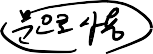 문으로 사용